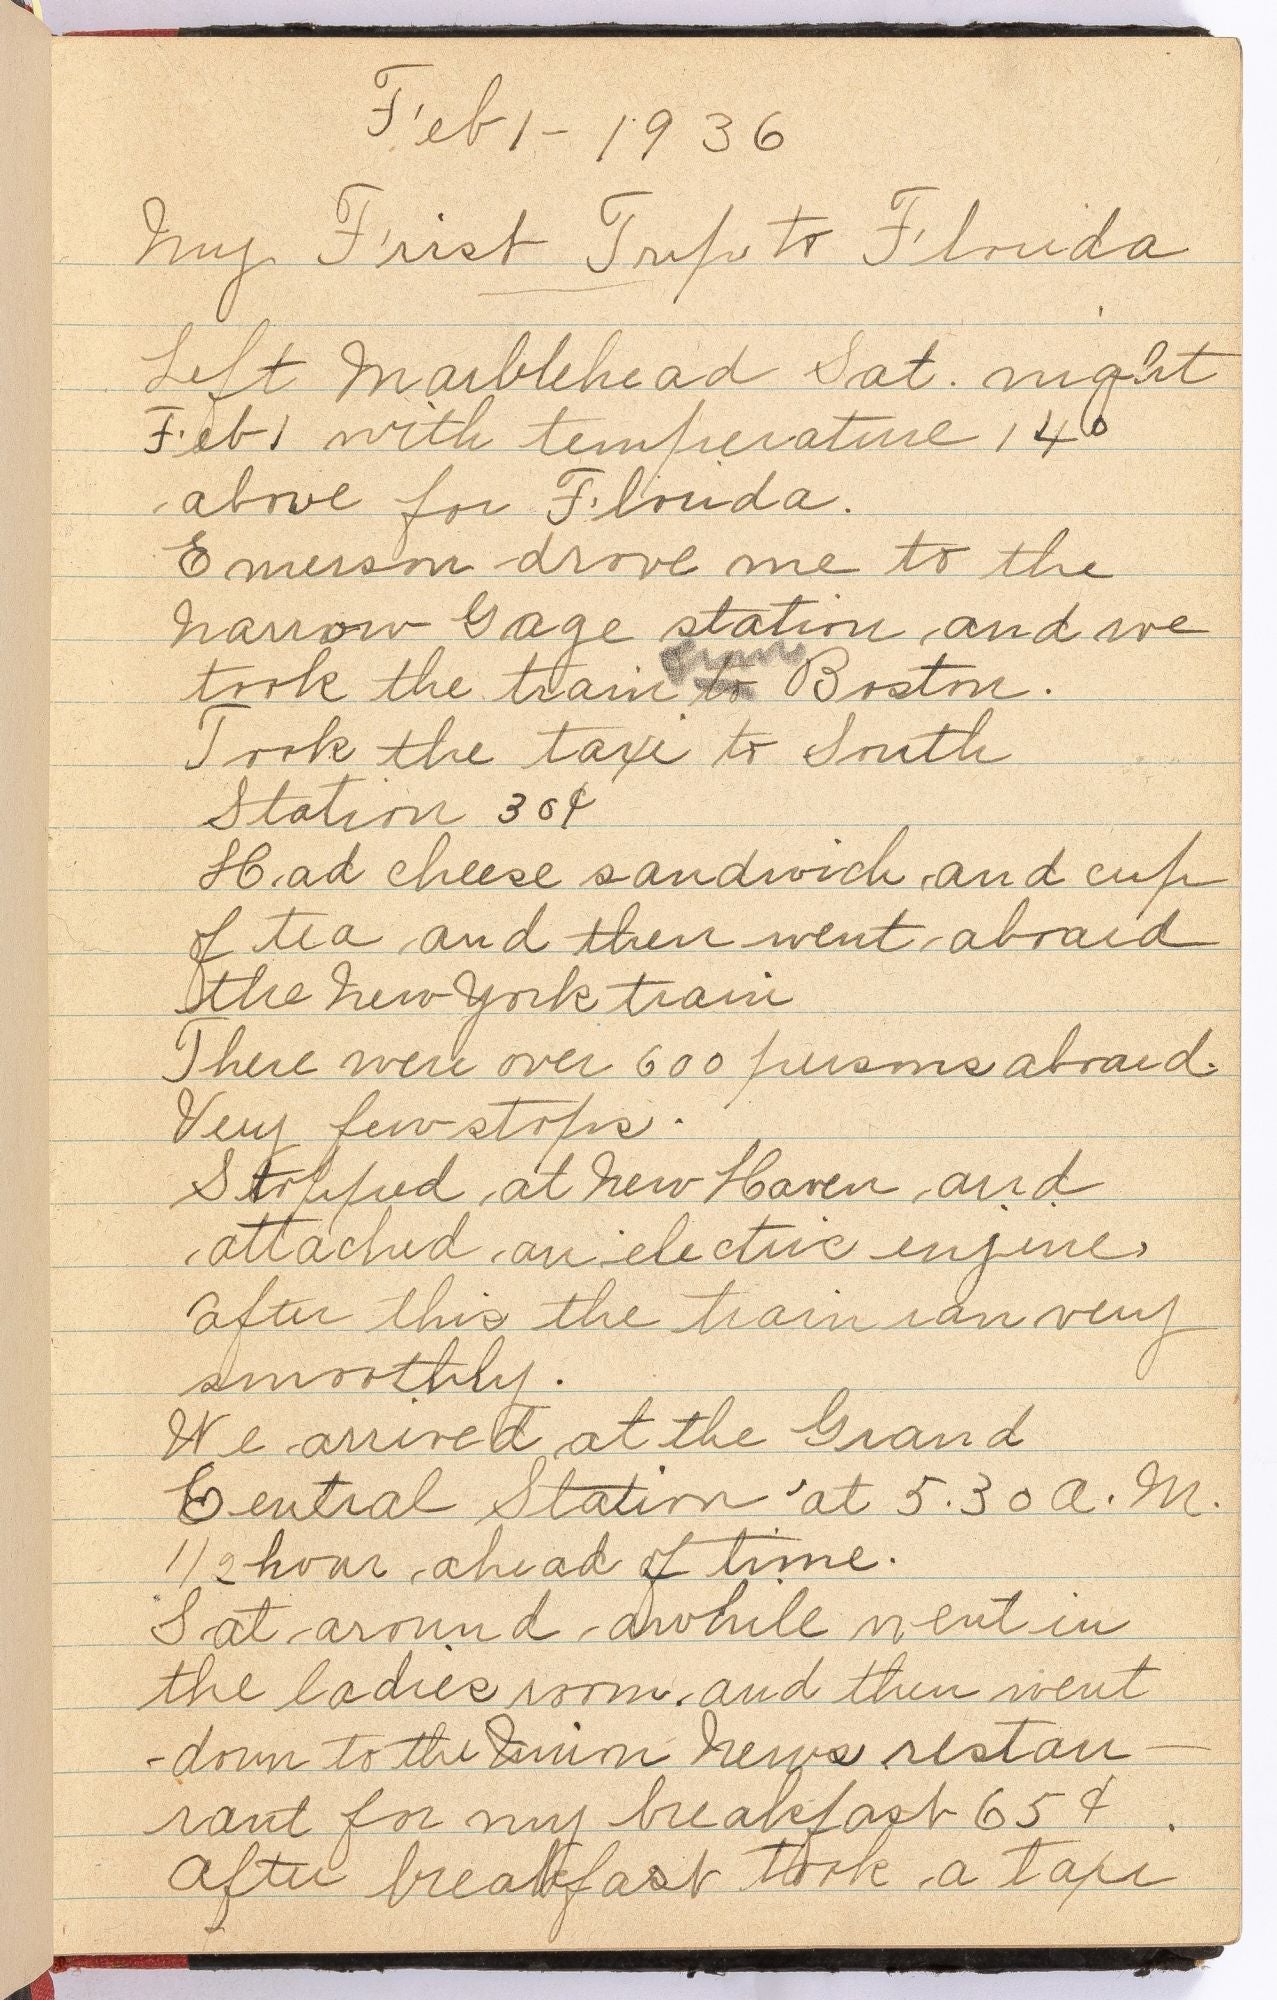 Feb 1 - 1936
My First Trip to Florida
Left Marblehead Sat. night
Feb 1 with temperature 14°
above for Florida.
Emerson drove me to the
Narrow Gage station and we
from
took the train to Boston.
Took the taxi to South
Station 30¢
Had cheese sandwich and cup
of tea and then went aboard
the New York train
There were over 600 persons aboard.
Very few stops.
Stopped at New Haven and
attached an electric engine,
after this the train ran very
smoothly.
We arrived at the Grand
Central Station at 5.30 A.M.
1/2 hour ahead of time.
Sat around awhile went in
the ladies room and then went
down to the Union News restau-
rant for my breakfast 65¢.
After breakfast took a taxi